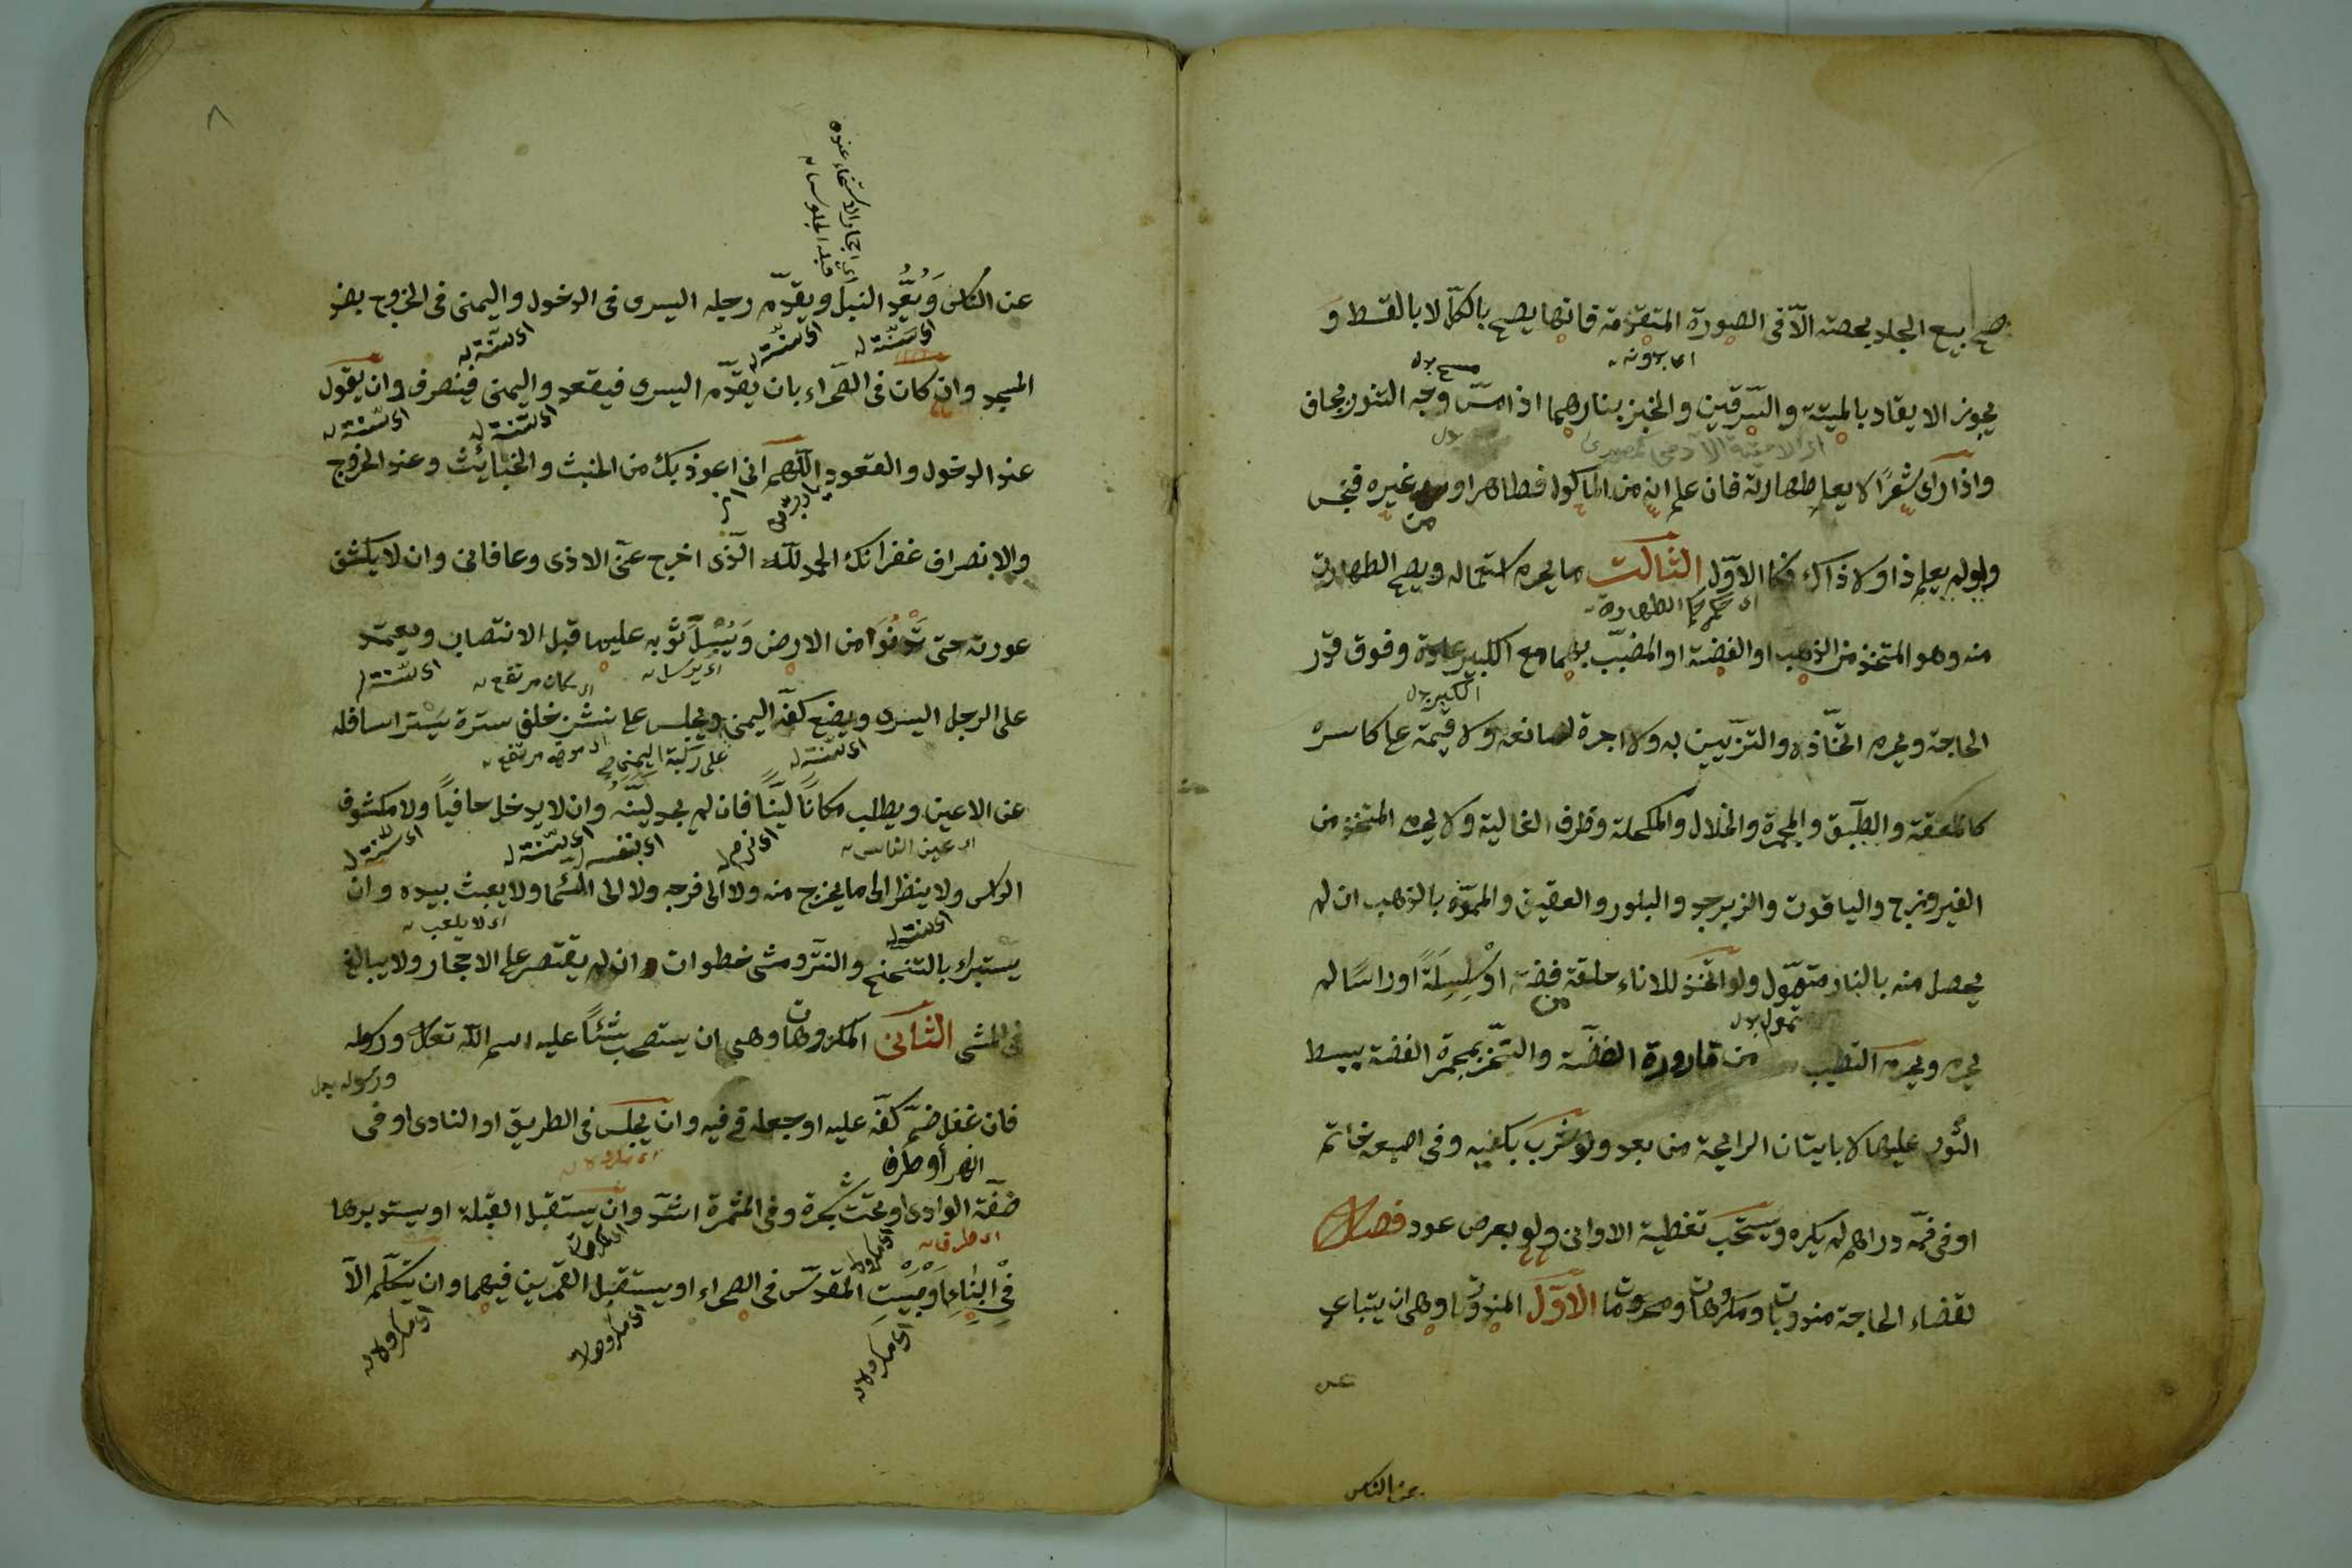 صح بيع الجلد بحصته الآ فى الصورة المتقدمة فانها يصح بالكل لا بالقسط و
اى بدونه
يجوز الايقاد بالميتة والسرقين والخبز بنارهما اذا مس وجه التنور بجاف
واذا راى شعرًا لا يعلم طهارته فان علم انه من الماكول فطاهر او من غيره فنجس
ولو لم يعلم ذا ولا ذاك فكالاول الثالث ما يحرم استعماله ويصح الطهارة
اى حكم الطهارة
منه وهو المتخذ من الذهب او الفضة او المضبب بهما مع الكبير عادة وفوق قدر
الكبر بدل
الحاجة ويحرم اتخاذه والتزيين به ولا اجرة لصانعه ولا قيمة على كاسره
كالملعقة والطبق والمجمرة والخلال والمكحلة وظرف الغالية ولا يحرم المتخذ من
الفيروزج والياقوت والزبرجد والبلور والعقيق والمموّه بالذهب ان لم
يحصل منه بالنار متموّل ولو اتخذ للاناء حلقة من فضة او سلسلة او راسًا لم
تمول بدل
يحرم ويحرم التطيب من قارورة الفضة والتبخر بمجمرة الفضة ببسط
الثوب عليها لا باتيان الرايحة من بعد ولو شرب بكفيه وفى اصبعه خاتم
او فى فمه دراهم لم يكره ويستحب تغطية الاوانى ولو بعرض عود فصل
لقضاء الحاجة مندوبات ومكروهات ومحرومات الاوّل المندوبات وهى ان يتباعد
عن الناس
اى احجار الاستنجاء عنده
قبل الجلوس
عن الناس وَيُعُدّ النبل ويقدّم رجله اليسرى فى الدخول واليمنى فى الخروج بضد
اى سنة له اى سنة له اى سنة له
المسجد وان كان فى الصحراء بان يقدّم اليسرى فيقعد واليمنى فينصرف وان يقول
اى سنة له اى سنة له
عند الدخول والقعود اللهم انى اعوذ بك من الخبث والخبائث وعند الخروج
والانصراف غفرانك الحمد لله الذى اخرج عنى الاذى وعافانى وان لا يكشف
عورته حتى تدنوا من الارض وَيُسْبِل ثوبه عليها قبل الانتصاب ويعتمد
اى يرسل اى مكان مرتفع اى سنة له
على الرجل اليسرى ويضع كفه اليمنى ويجلس على نشز خلف سترة يستر اسافله
اى سنة له على ركبة اليمنى صح اى موضع مرتفع
عن الاعين ويطلب مكانًا ليّنًا فان لم يجد ليّنه وان لا يدخل حافيًا ولا مكشوف
اى عين الناس اى بنفسه اى سنة له اى سنة له
الراس ولا ينظر الى ما يخرج منه ولا الى فرجه ولا الى السما ولا يعبث بيده وان
اى سنة له اى لا يلعب
يستبرأ بالتنحنح والنتر ومشى خطوات وان لم يقتصر على الاحجار ولا يبالغ
فى المشى الثانى المكروهات وهى ان يستصحب شيئًا عليه اسم الله تعالى ورسوله
ورسوله بدل
فان غفل ضمّ كفّه عليه او جعله فى فيه وان يجلس فى الطريق او النادى او فى
النهر أو طرف
ضفة الوادى او تحت شجرة وفى المثمرة اشد وان يستقبل القبلة او يستدبرها
اى طرف اى مكروه
فى البناء او بيت المقدس فى الصحراء او يستقبل القمرين فيهما وان يتكلم الآ
اى مكروه اى مكروه اى مكروه